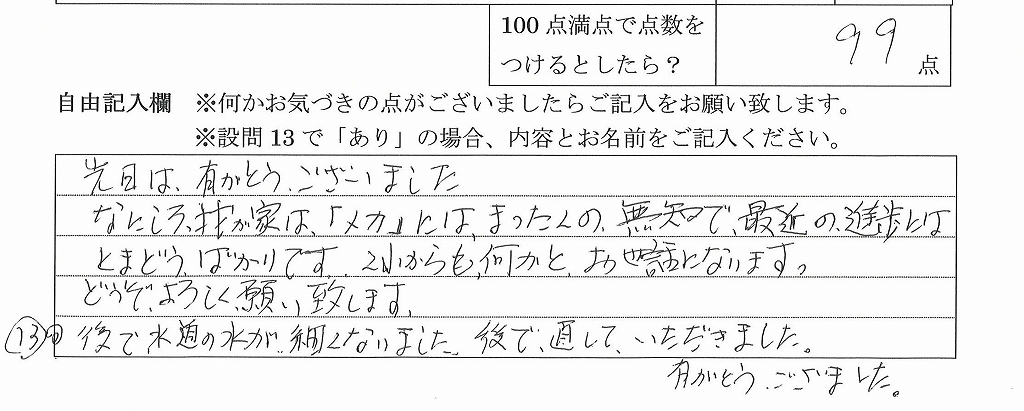 100点満点で点数を
つけるとしたら？
99 点
自由記入欄 ※何かお気づきの点がございましたらご記入をお願い致します。
※設問13で「あり」の場合、内容とお名前をご記入ください。
先日は、有がとう、ございました
なにしろ、我が家は、「メカ」には、まったくの、無知で、最近の、進歩には
とまどう、ばかりです。これからも、何かと、お世話になります。
どうぞ、よろしく、願い、致します。
⑬の 後で、水道の水が、細くなりました、後で、直して、いただきました。
有がとう、ございました。